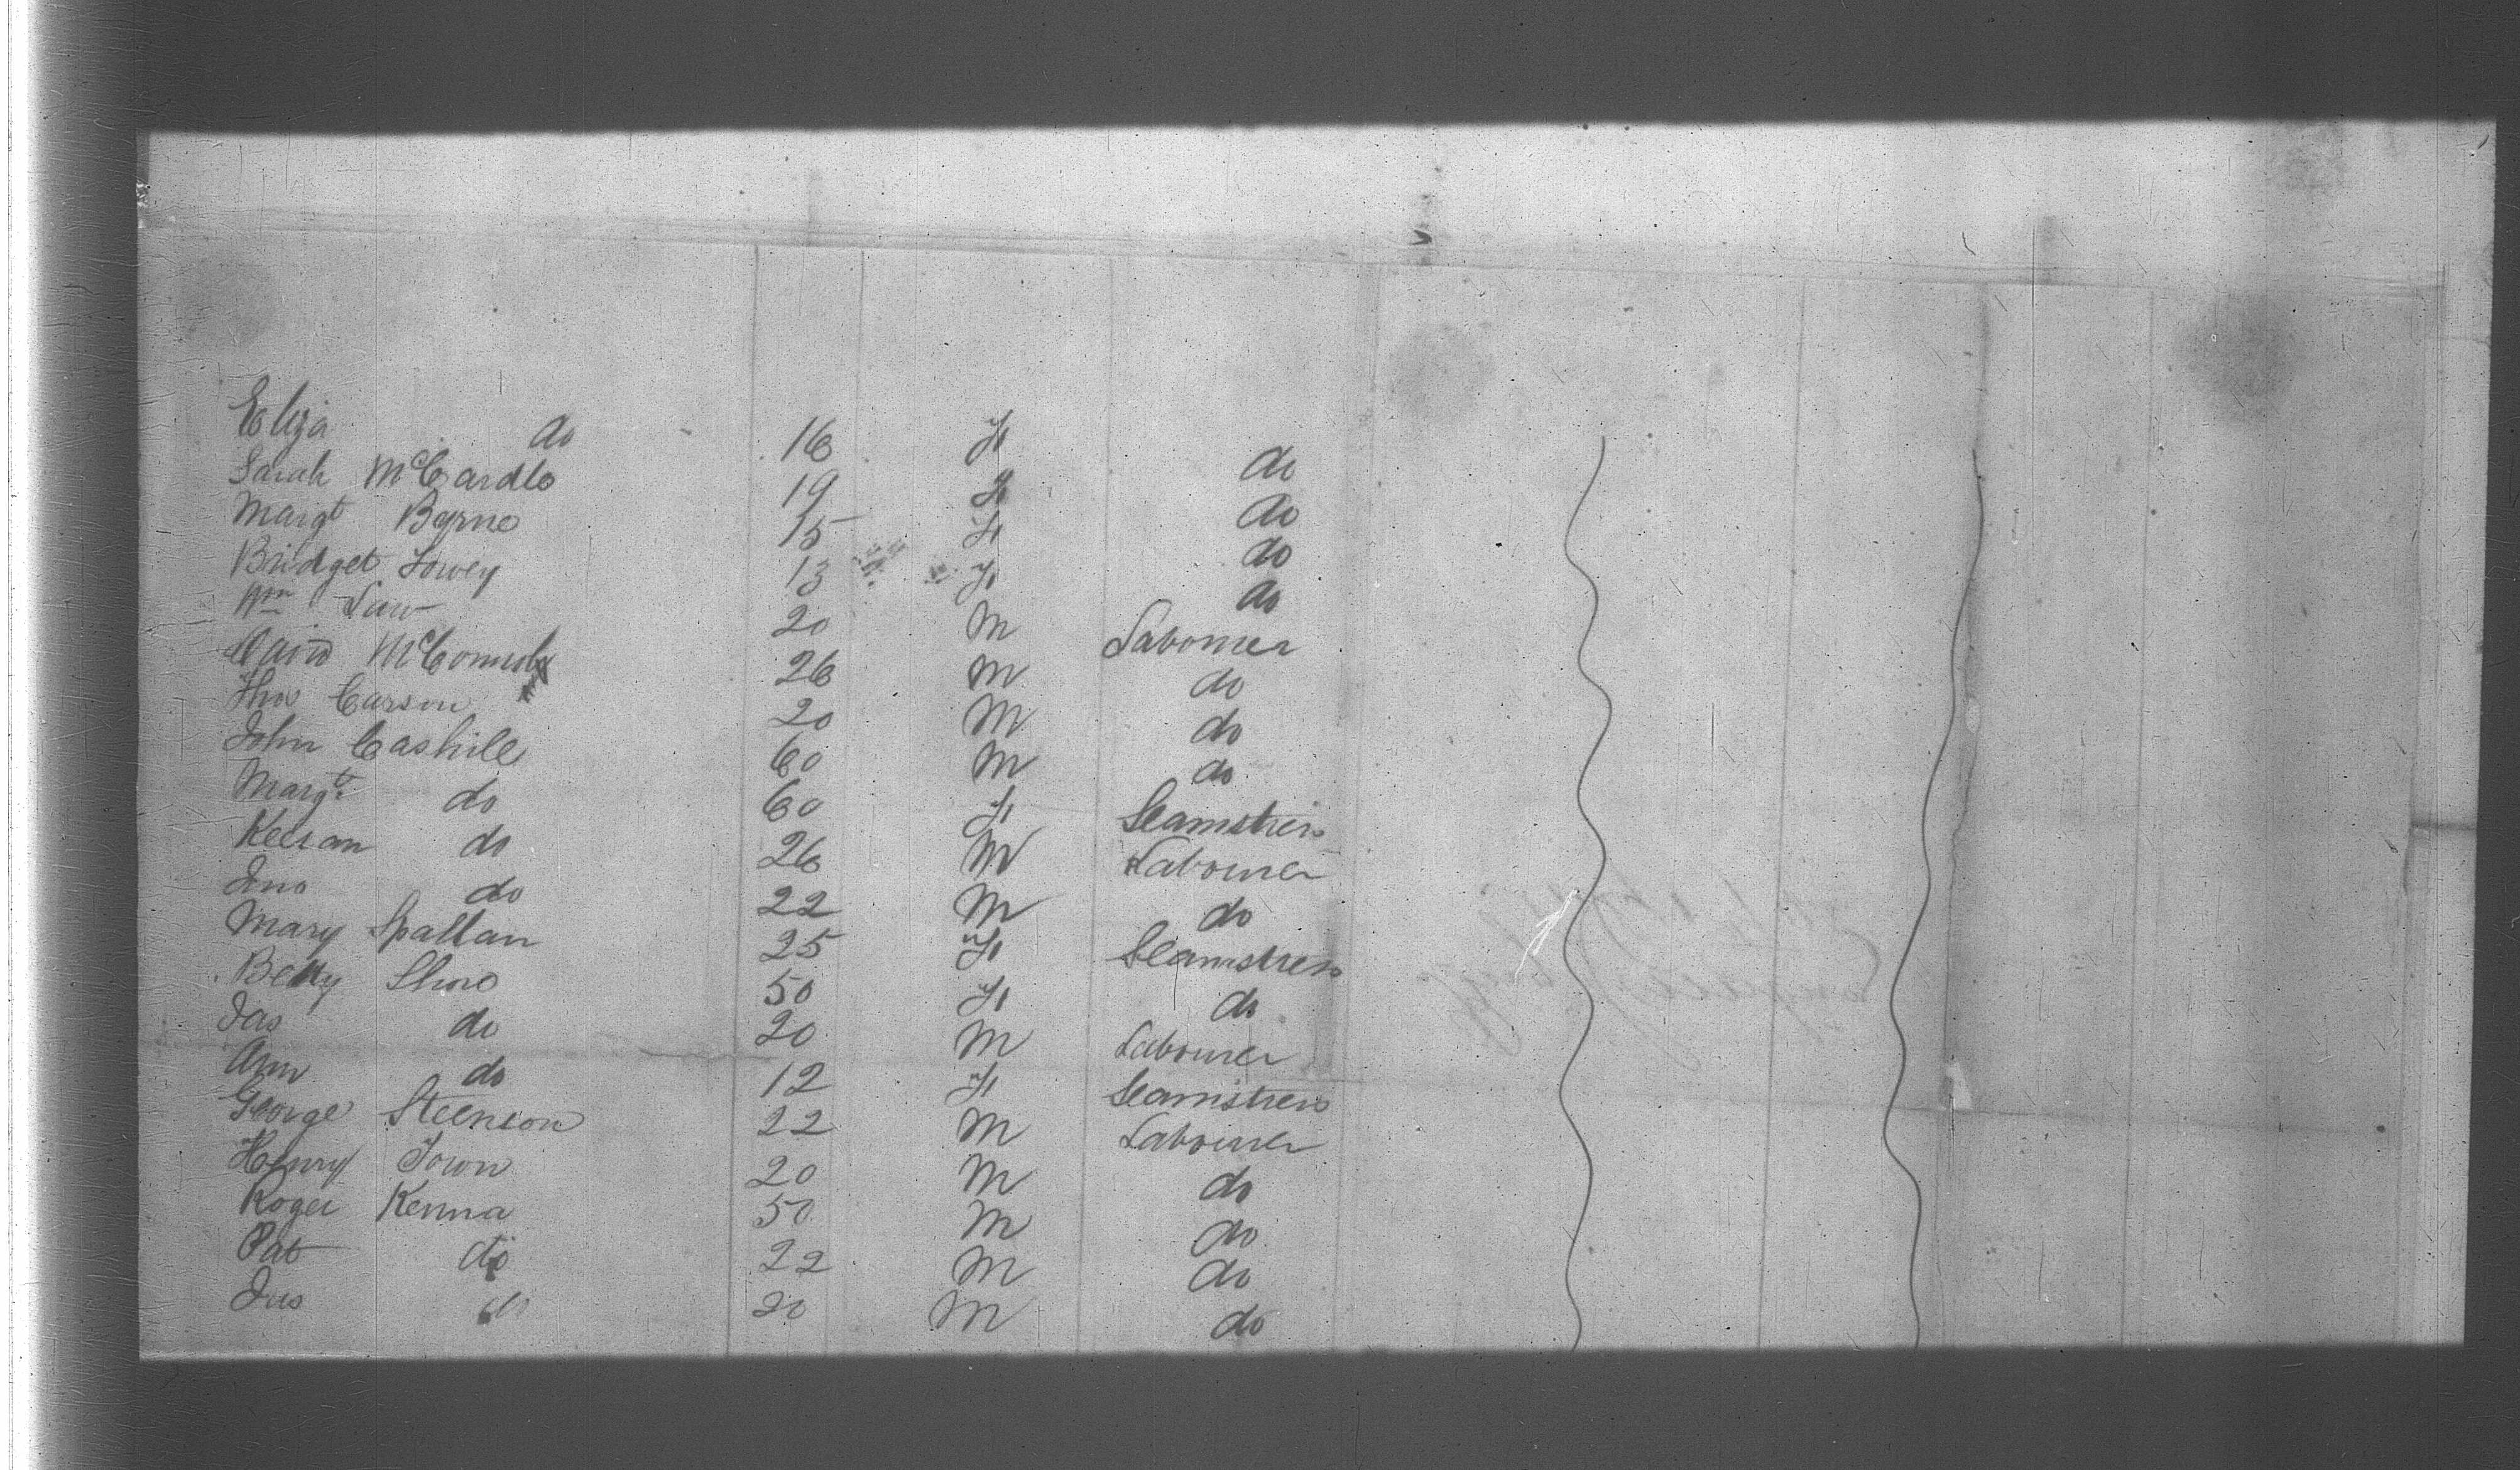 Eliza do 16 F do
Sarah McCardle 19 F do
Margt Byrne 15 F do
Bridget Lowey 13 F do
Wm Law 20 M Labourer
David McConnell 26 M do
Thos Carson 20 M do
John Cashill 60 M do
Margt do 60 F Seamstress
Keeran do 26 M Labourer
Jno do 22 M do
Mary Spallan 25 F Seamstress
Betty 50 F do
Jas do 20 M Labourer
Ann do 12 F Seamstress
George Steenson 22 M Labourer
Henry Town 20 M do
Roger Kenna 50 M do
Pat do 22 M do
Jas do 20 M do